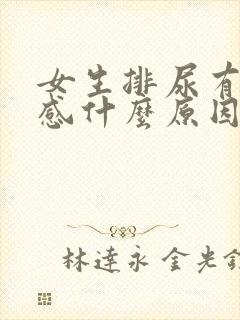 女生排尿有
感什麼原因
林達永 金光鉉